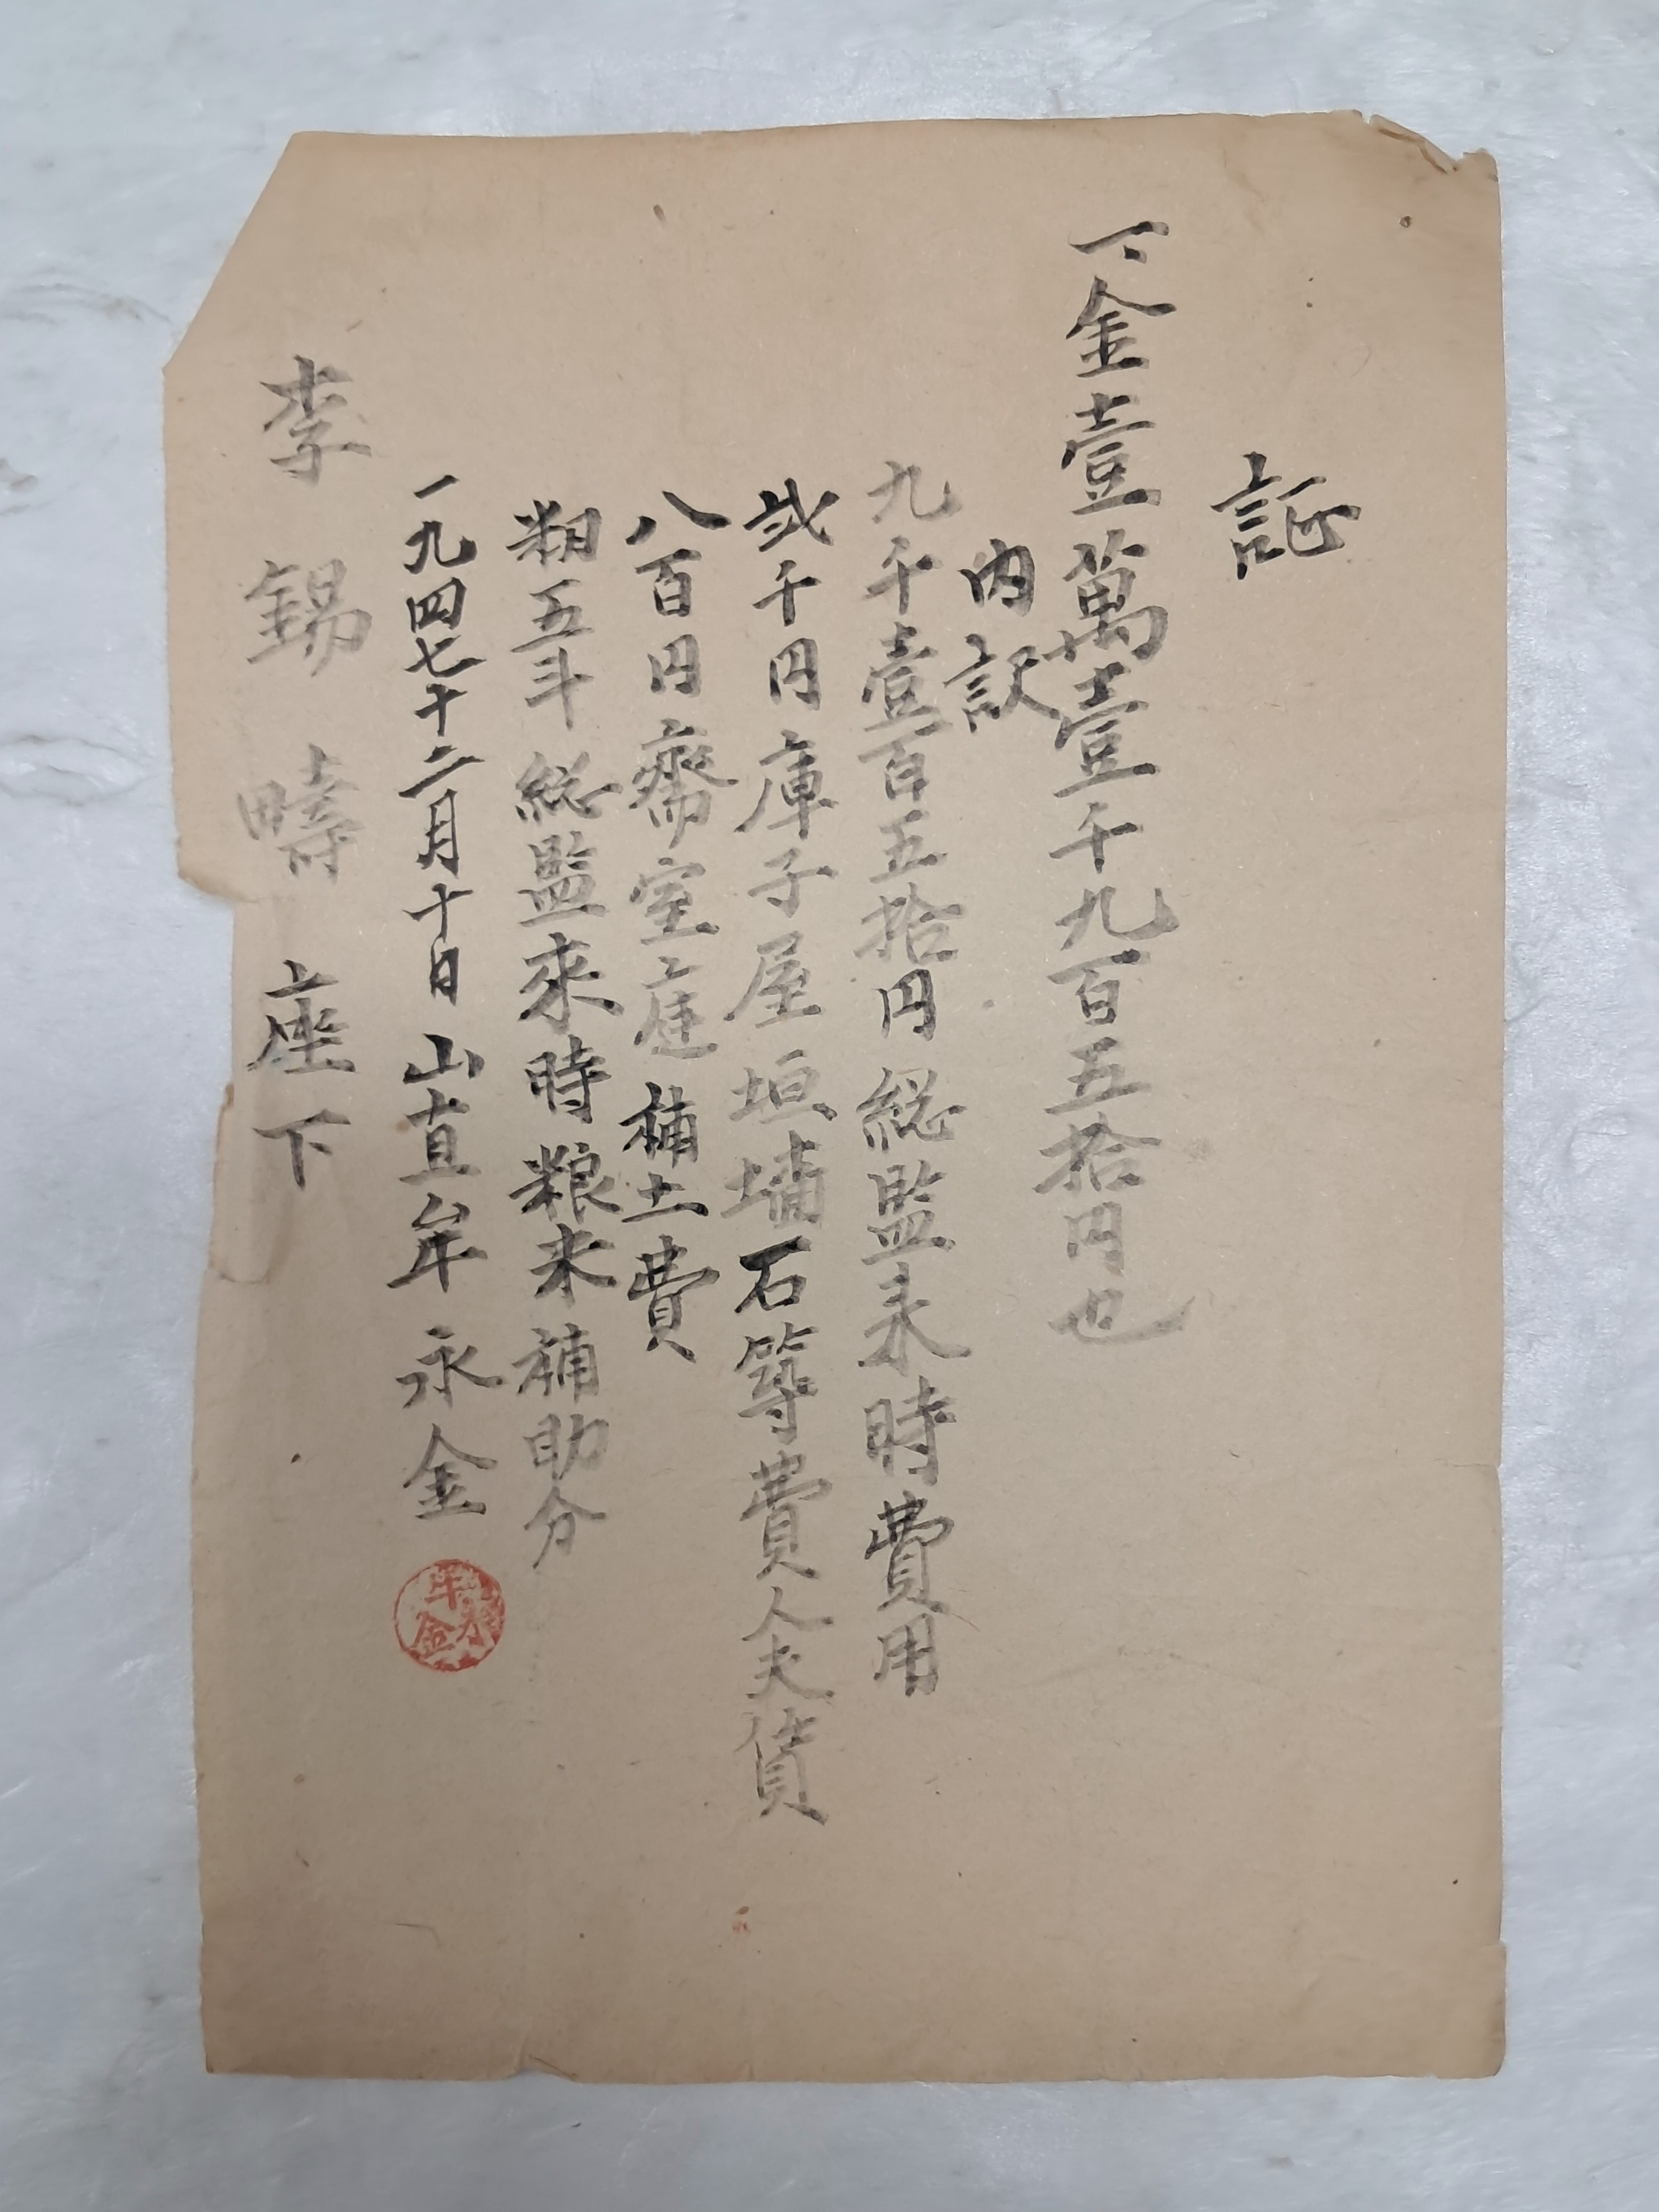 証
一、金壹萬壹千九百五拾円也
内訳
九千壹百五拾円 総監来時費用
弐千円 庫子屋垣墻石等費人夫賃
八百円 齋室庭補土費
籾五斗 総監來時粮米補助分
一九四七十二月十日 山直 牟永金
牟永金
李錫疇 座下